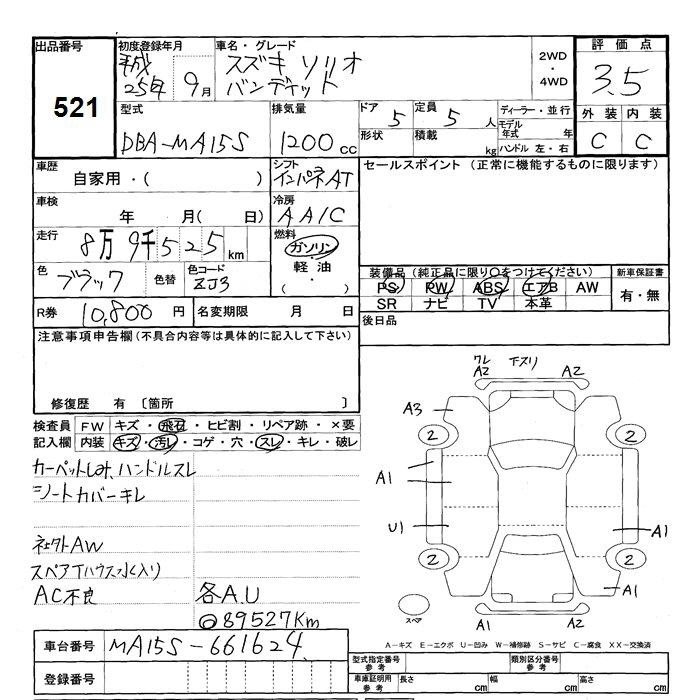 出品番号
521
初度登録年月
平成
25年 9月
車名・グレード
スズキ ソリオ
バンディット
2WD
・
4WD
評価点
3.5
外装 内装
C C
型式
DBA-MA15S
排気量
1200 cc
ドア 5
定員 5 人
形状
積載 kg
ディーラー・並行
モデル年式 年
ハンドル 左・右
車歴
自家用・( )
シフト
インパネAT
セールスポイント (正常に機能するものに限ります)
車検
年 月( 日)
冷房
AA/C
走行
8万 9千 5 2 5 km
燃料
ガソリン
軽油
( )
色
ブラック
色替
色コード
ZJ3
装備品 (純正品に限り○をつけてください)
PS PW ABS エアB AW
SR ナビ TV 本革
新車保証書
有・無
R券 10,800 円
名変期限 月 日
後日品
注意事項申告欄 (不具合内容等は具体的に記入して下さい)
修復歴 有 〔箇所 〕
検査員
記入欄
FW キズ・飛石・ヒビ割・リペア跡・×要
内装 キズ・汚レ・コゲ・穴・スレ・キレ・破レ
カーペットしみ, ハンドルスレ
シートカバーキレ
社外AW
スペアTハウス水入り
AC不良
各A.U
◎89527Km
ワレ
A2
下スリ
A2
A3
2
2
A1
U1
A1
2
2
A1
スペア
A1
A2
A-キズ E-エクボ U-凹み W-補修跡 S-サビ C-腐食 XX-交換済
車台番号 MA15S-661624
登録番号
型式指定番号
参考
類別区分番号
参考
車庫証明用
参考
長さ cm
幅 cm
高さ cm